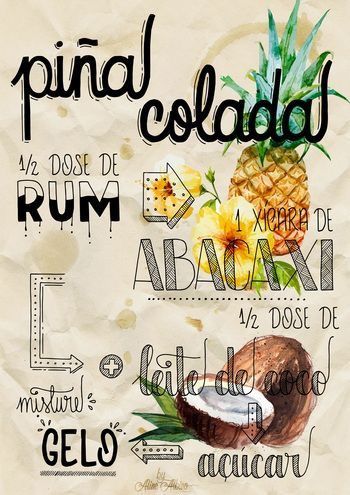 piña
colada
1/2 DOSE DE
RUM
1 XICARA DE
ABACAXI
1/2 DOSE DE
leite de coco
misture
GELO
açúcar
by